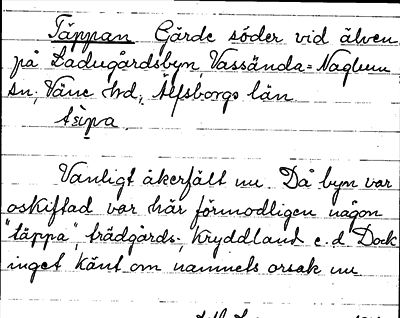 Täppan Gärde söder vid älven
på Ladugårdsbyn, Vassända=Naglum
sn; Väne hd, Älfsborgs län
Vanligt åkerfält nu. Då byn var
oskiftad var här förmodligen någon
"täppa", trädgårds-, kryddland e.d. Dock
inget känt om namnets orsak nu